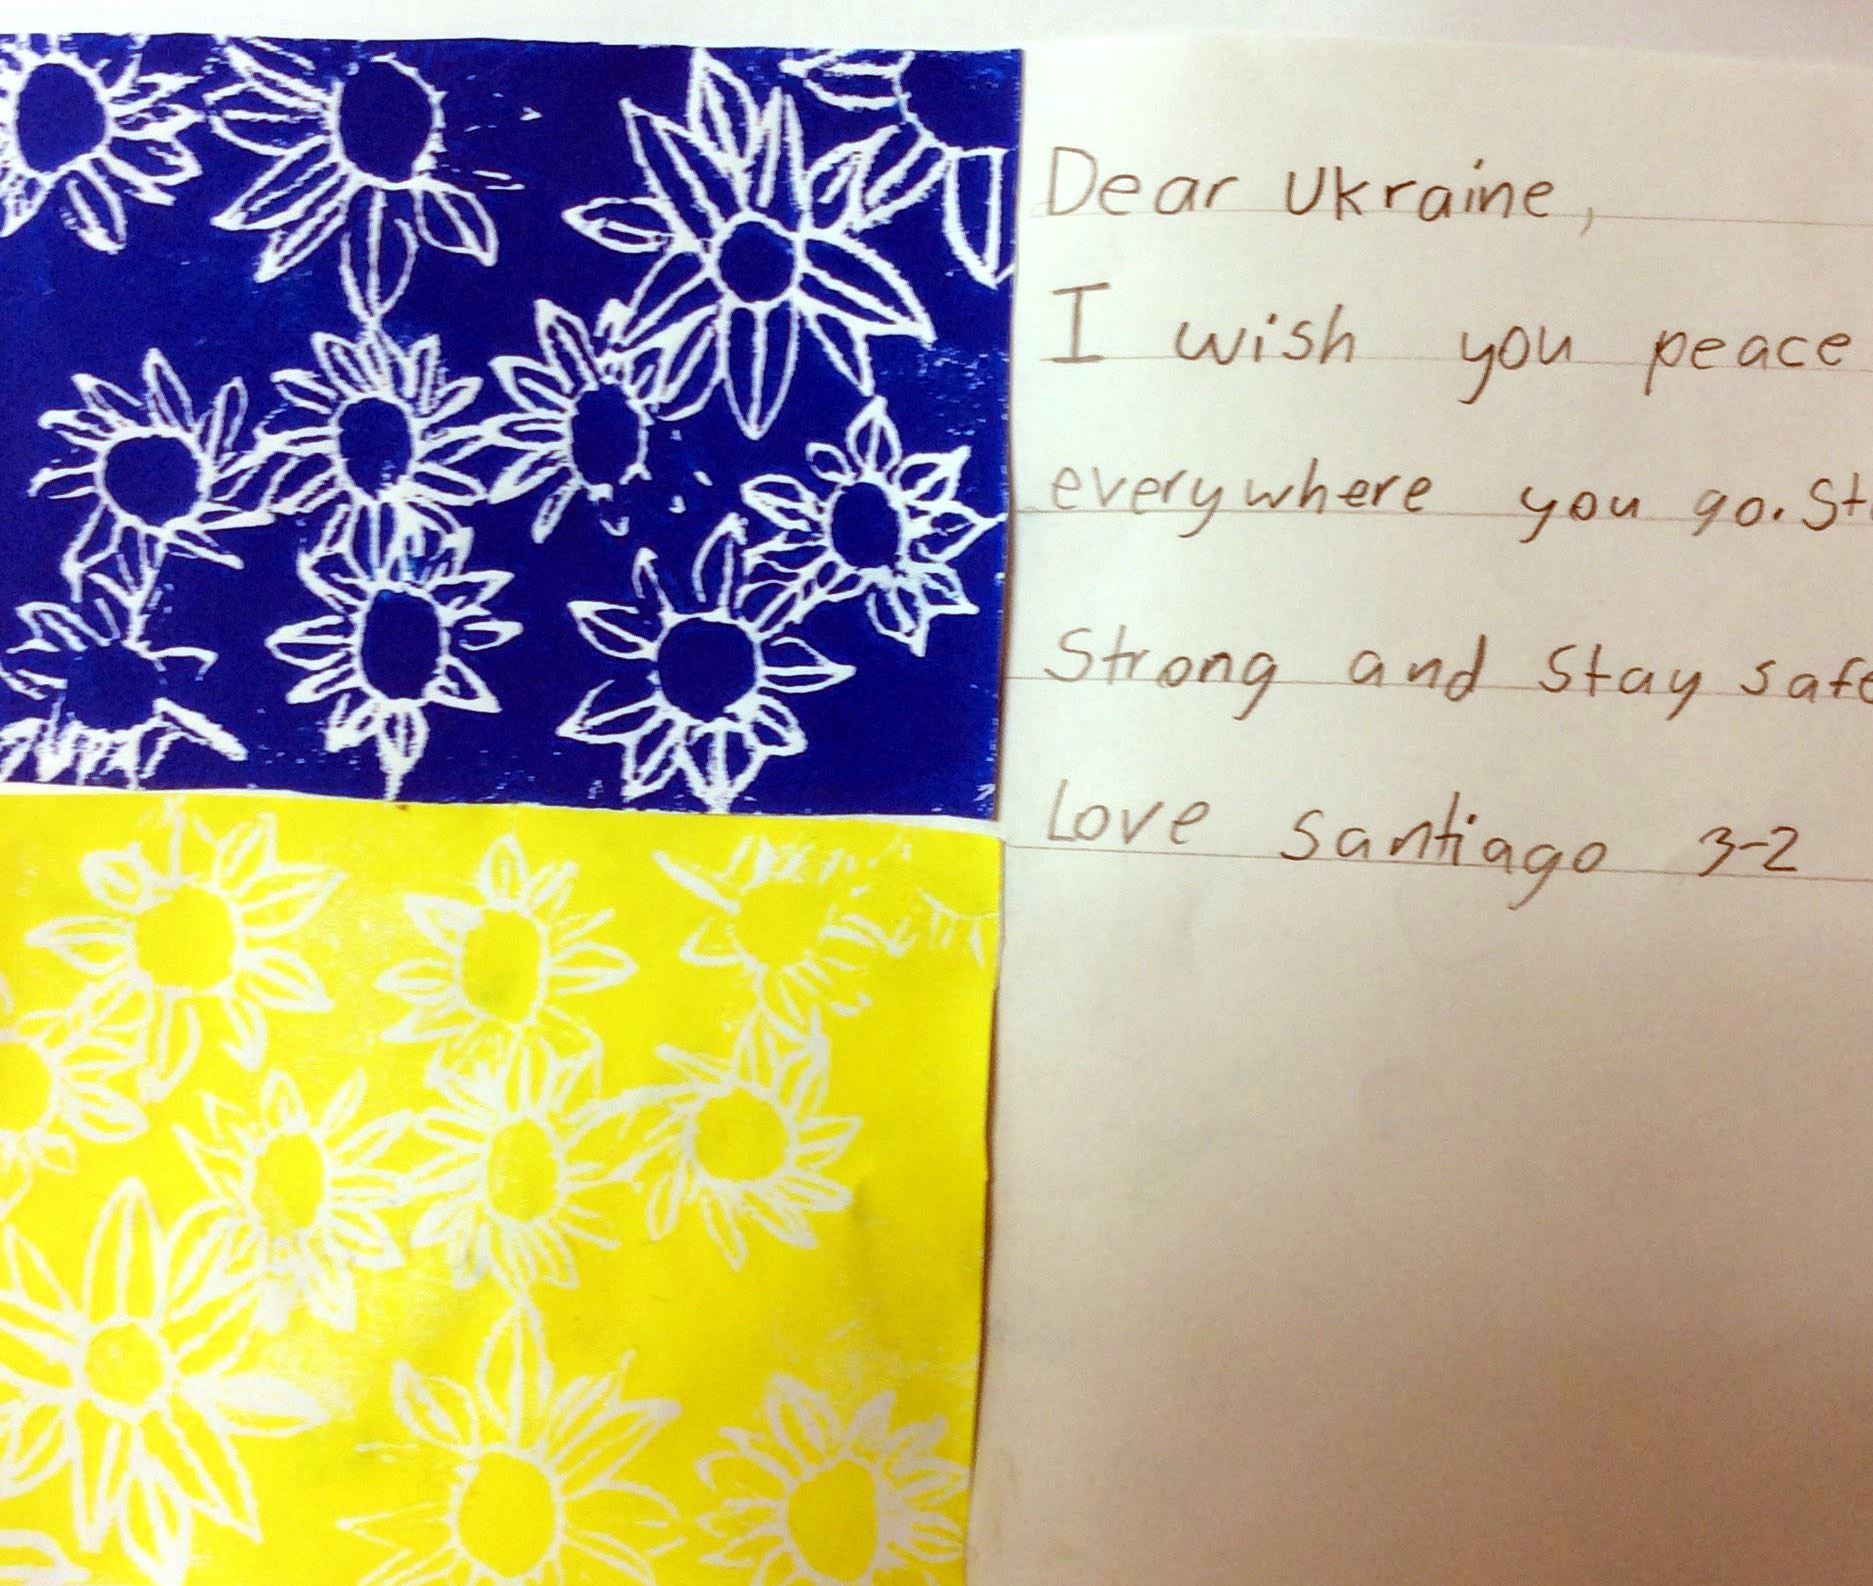 Dear Ukraine,
I wish you peace
everywhere you go. St
Strong and Stay safe
Love Santiago 3-2